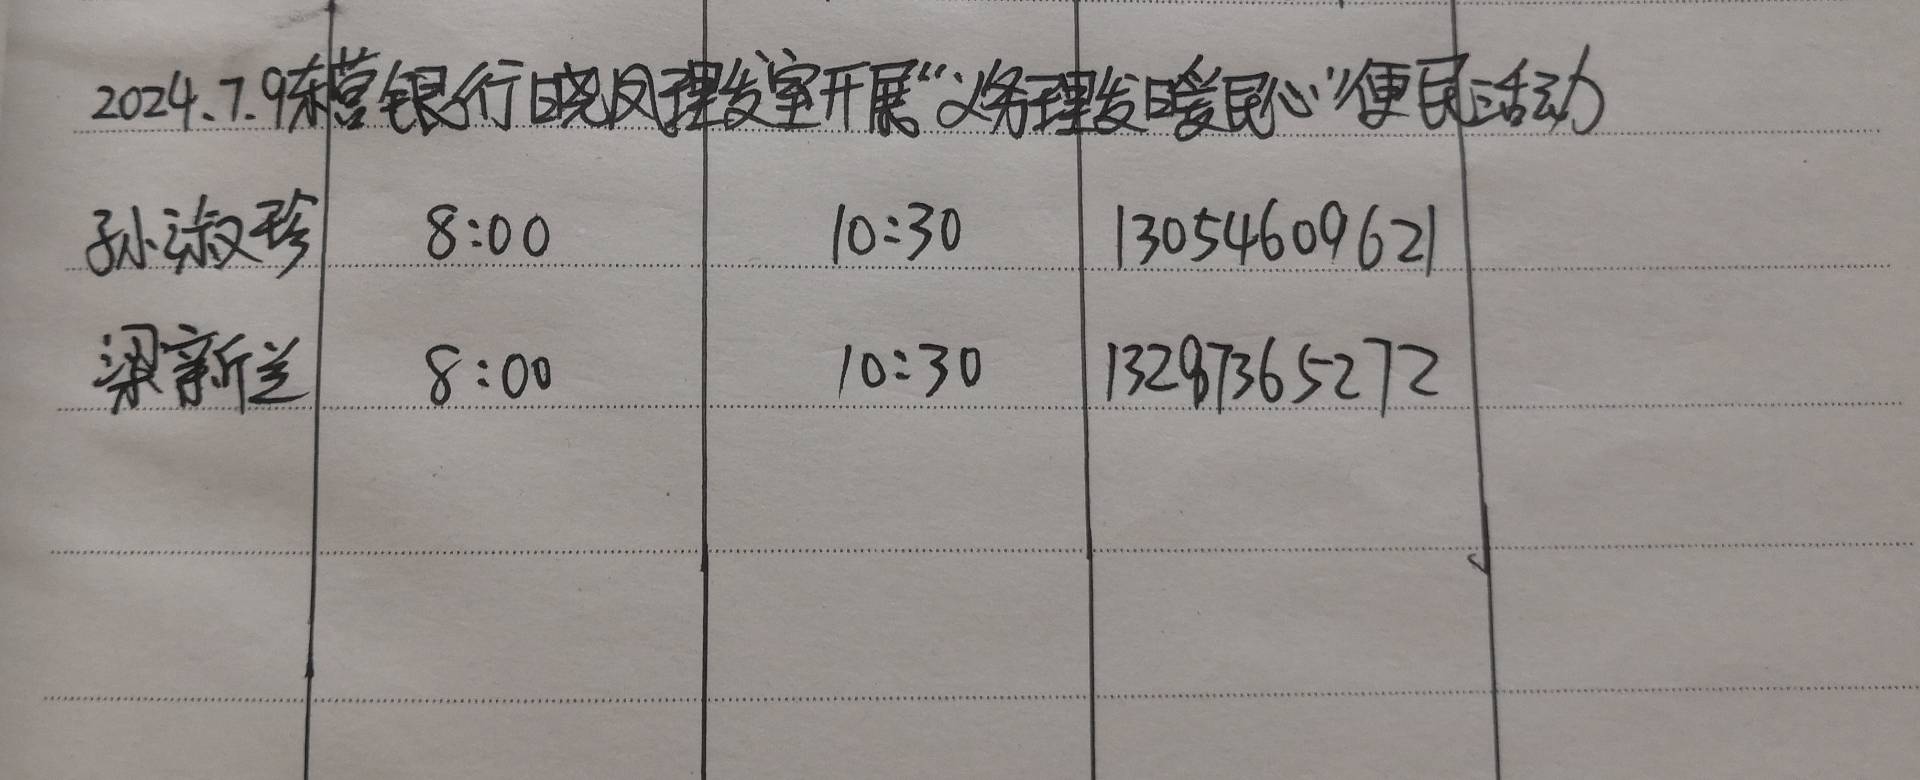 2024.7.9东营银行晓凤理发室开展“义务理发暖民心”便民活动
孙淑珍 8:00 10:30 13054609621
梁新兰 8:00 10:30 13287365272